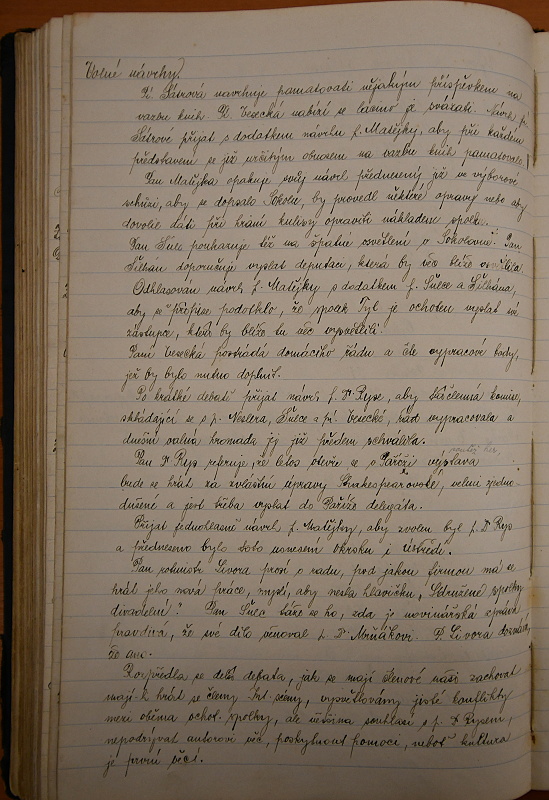 Volné návrhy.
Pí Sátrová navrhuje pamatovati nějakým příspěvkem na
vazbu knih. Pí Vesecká nabízí se lacino je svázati. Návrh pí
Sátrové přijat s dodatkem návrhu p. Matějky, aby při každém
představení se již určitým obnosem na vazbu knih pamatovalo.
Pan Matějka opakuje svůj návrh přednesený již ve výborové
schůzi, aby se dopsalo Sokolu, by provedl některé opravy nebo aby
dovolil dáti při hraní kulisy opraviti nákladem spolku.
Pan Šulc poukazuje též na špatné osvětlení v Sokolovně. Pan
doporučuje vyslat deputaci, která by věc blíže
Odhlasován návrh p. Matějky s dodatkem p. Šulce a
aby se přípise podotklo, že spolek Tyl je ochoten vyslat své
zástupce, kteří by blíže tu věc vysvětlili.
Paní Vesecká postrádá domácího řádu a čte vypracové body,
jež by bylo nutno doplnit.
Po krátké debatě přijat návrh p. Dr Ryse, aby tříčlenná komise,
skládající se z p. Neslera, Šulce a pí. Vesecké, řád vypracovala a
dnešní valná hromada jej již předem schválila.
Pan Dr Rys referuje, že letos otevře se v Paříži výstava
bude se hrát za zvláštní úpravy Shakespearovské, velmi zjedno-
dušené a jest třeba vyslat do Paříže delegáta.
Přijat jednohlasně návrh p. Matějky, aby zvolen byl p. Dr Rys
a předneseno bylo toto usnesení okrsku i ústředí.
Pan rotmistr Sivora prosí o radu, pod jakou firmou má se
hrát jeho nová práce, myslí, aby nesla hlavičku „Sdružené spolky
divadelní“? Pan Šulc táže se ho, zda je novinářská zpráva
pravdivá, že své dílo věnoval p. Dr. Mrňákovi. P. Sivora
že ano.
Rozpředla se delší debata, jak se mají členové naši zachovat
mají-li hrát se členy vysvětlovány jisté konflikty
mezi oběma ochot. spolky, ale většina souhlasí s p. Dr Rysem,
nepodrývat autorovi věc, poskytnout pomoci, neboť kultura
je první věcí.